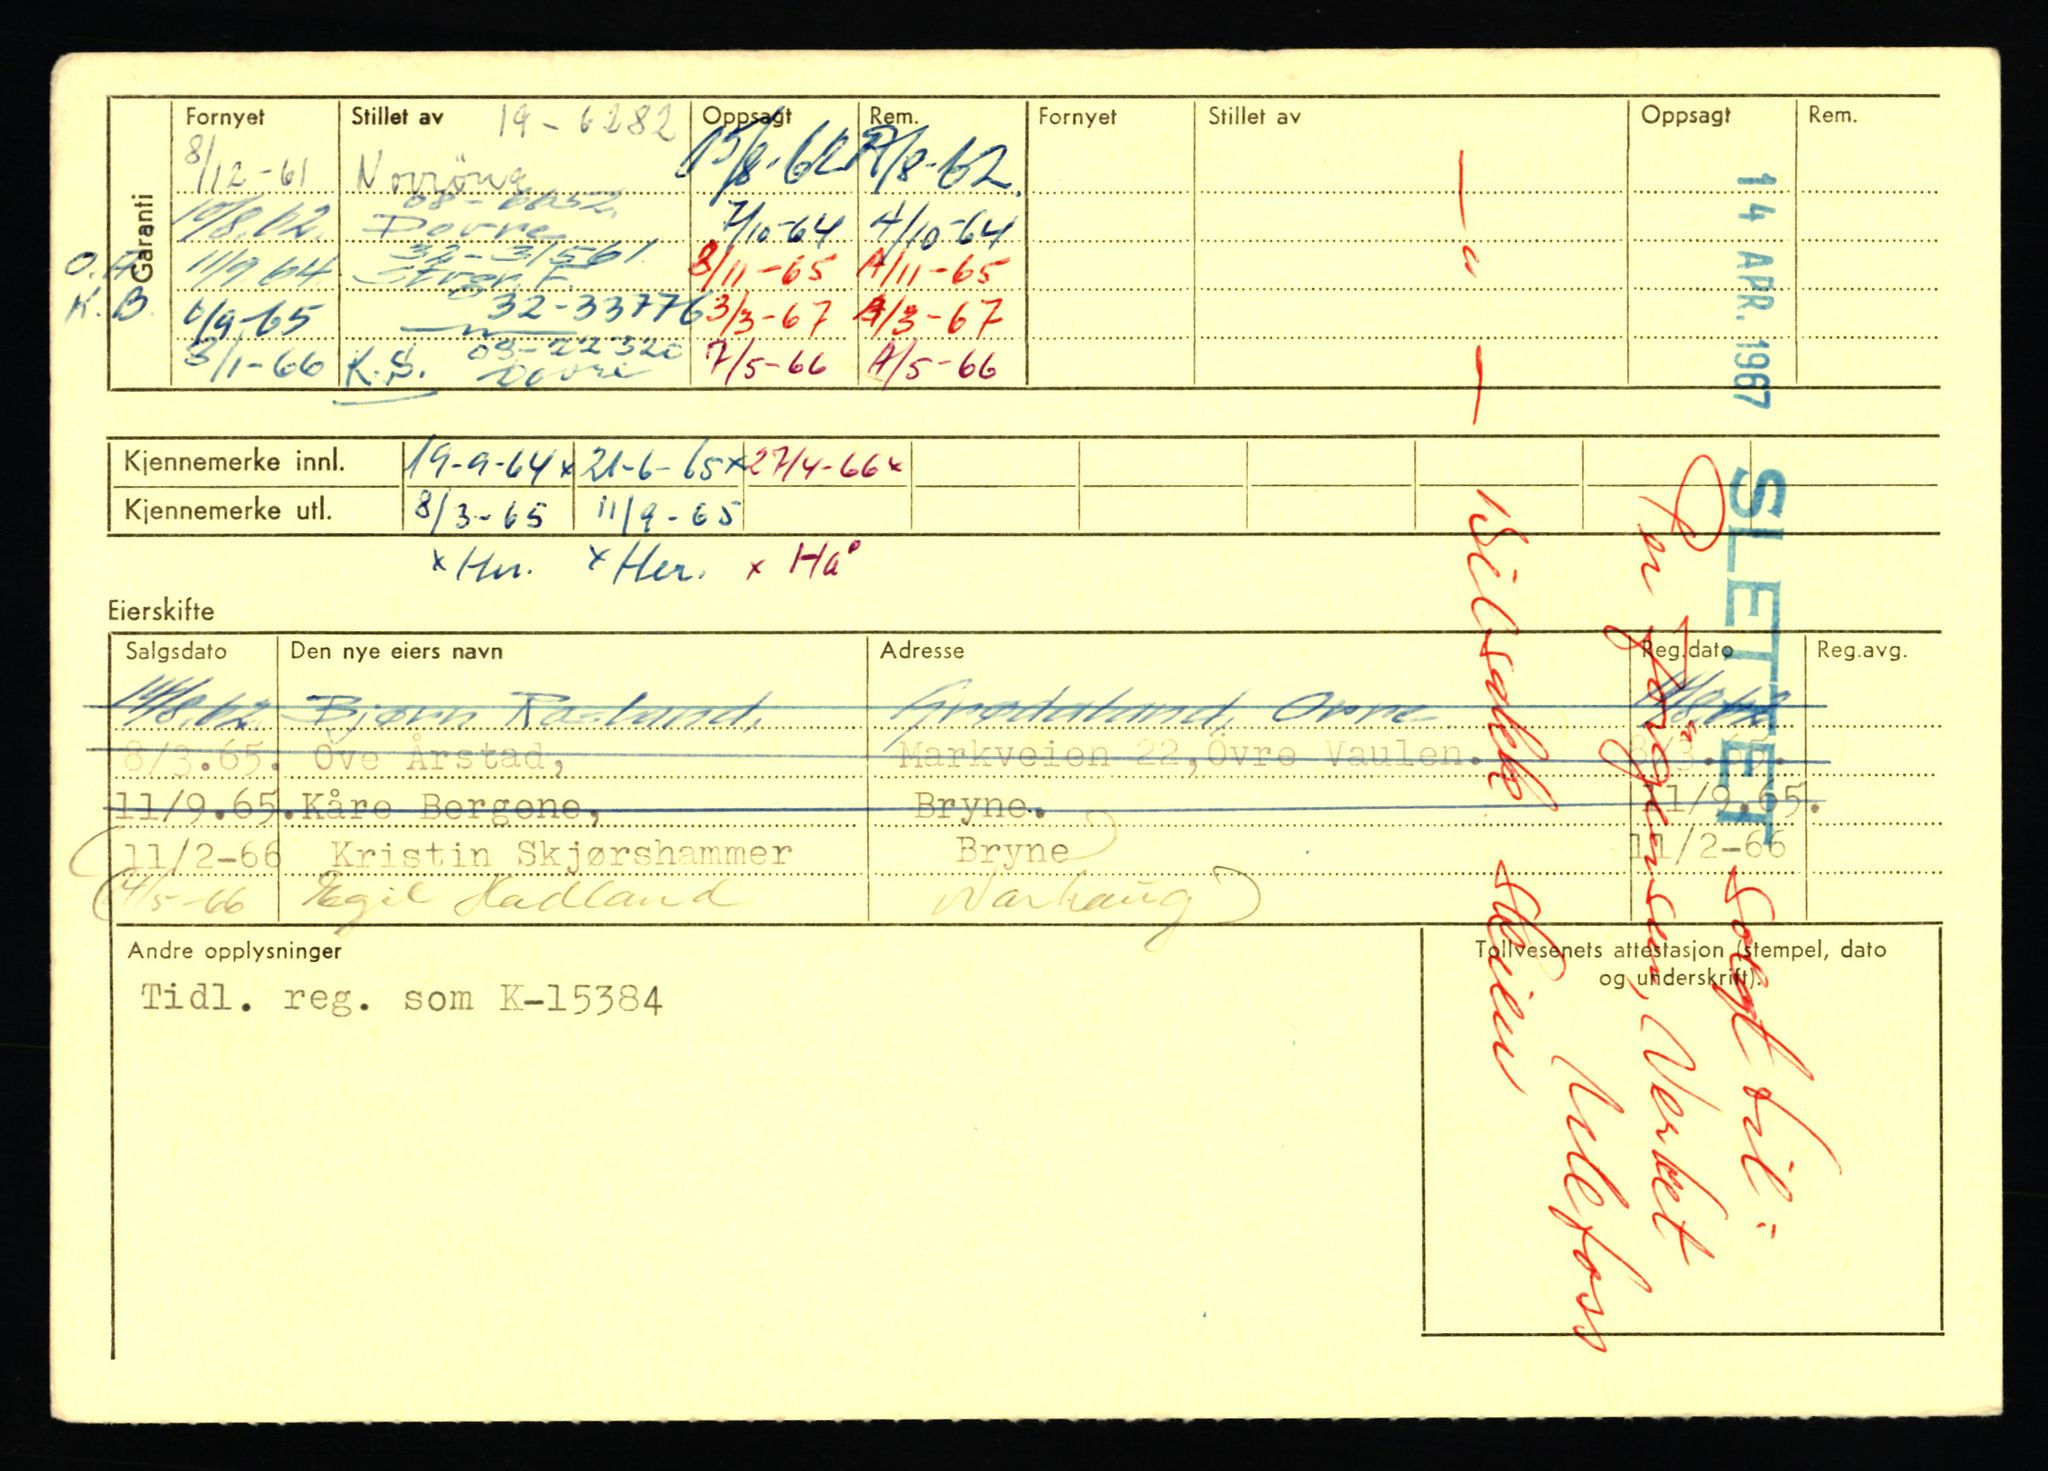 Garanti
Fornyet Stillet av 19-6282 Oppsagt Rem. Fornyet Stillet av Oppsagt Rem.
8/12-61 15/8-62 /8-62
10/8.62. Dovre 7/10-64 A/10-64
O.Å. 11/9.64. 32-31561 8/11-65 A/11-65
K.B. 32-33776 3/3-67 /3-67
3/1-66 K.S. 03-22320 Dovre 7/5-66 A/5-66
Kjennemerke innl. 19-9-64x 21-6-65x 27/4-66x
Kjennemerke utl. 8/3-65 11/9-65
x Her. x Her. x Hå
Eierskifte
Salgsdato Den nye eiers navn Adresse Reg.dato Reg.avg.
14/8.62. Bjørn Grødaland,
8/3.65. Ove Årstad, Markveien 22, Övre Vaulen. 8/3.65.
11/9.65. Kåre Bergene, Bryne. 11/9.65.
(11/2-66 Kristin Skjørshammer Bryne) 11/2-66
(4/5-66 Egil Hadland Varhaug)
Andre opplysninger
Tidl. reg. som K-15384
Tollvesenets attestasjon (stempel, dato
og underskrift).
14 APR. 1967
SLETTET
Solgt til:
Per Jörgensen, Verket
Ulefoss
— " — Bilsaks Skien